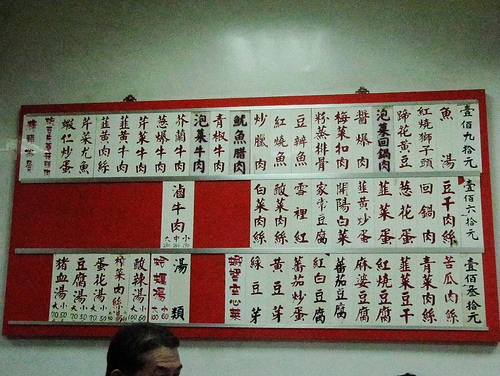 壹佰九拾元
魚湯
紅燒獅子頭
蹄花黃豆
泡菜回鍋肉
醬爆肉
梅菜扣肉
粉蒸排骨
豆辦魚
紅燒魚
炒臘肉
魷魚腊肉
青椒牛肉
泡菜牛肉
芥蘭牛肉
蔥爆牛肉
芹菜牛肉
韮黃牛肉
韮黃肉絲
芹菜尤魚
蝦仁炒蛋
壹佰六拾元
豆干肉絲
回鍋肉
蔥花蛋
韮菜蛋
韮黃炒蛋
開陽白菜
家常豆腐
雪裡紅
酸菜肉絲
白菜肉絲
滷牛肉 大中小
壹佰叁拾元
苦瓜肉絲
青菜肉絲
韮菜豆干
紅燒豆腐
麻婆豆腐
蕃茄豆腐
紅白豆腐
蕃茄炒蛋
黃豆芽
綠豆芽
湯類
酸辣湯 大100 小60
榨菜肉絲湯
蛋花湯 大70 小50
豆腐湯 大70 小50
豬血湯 大70 小50